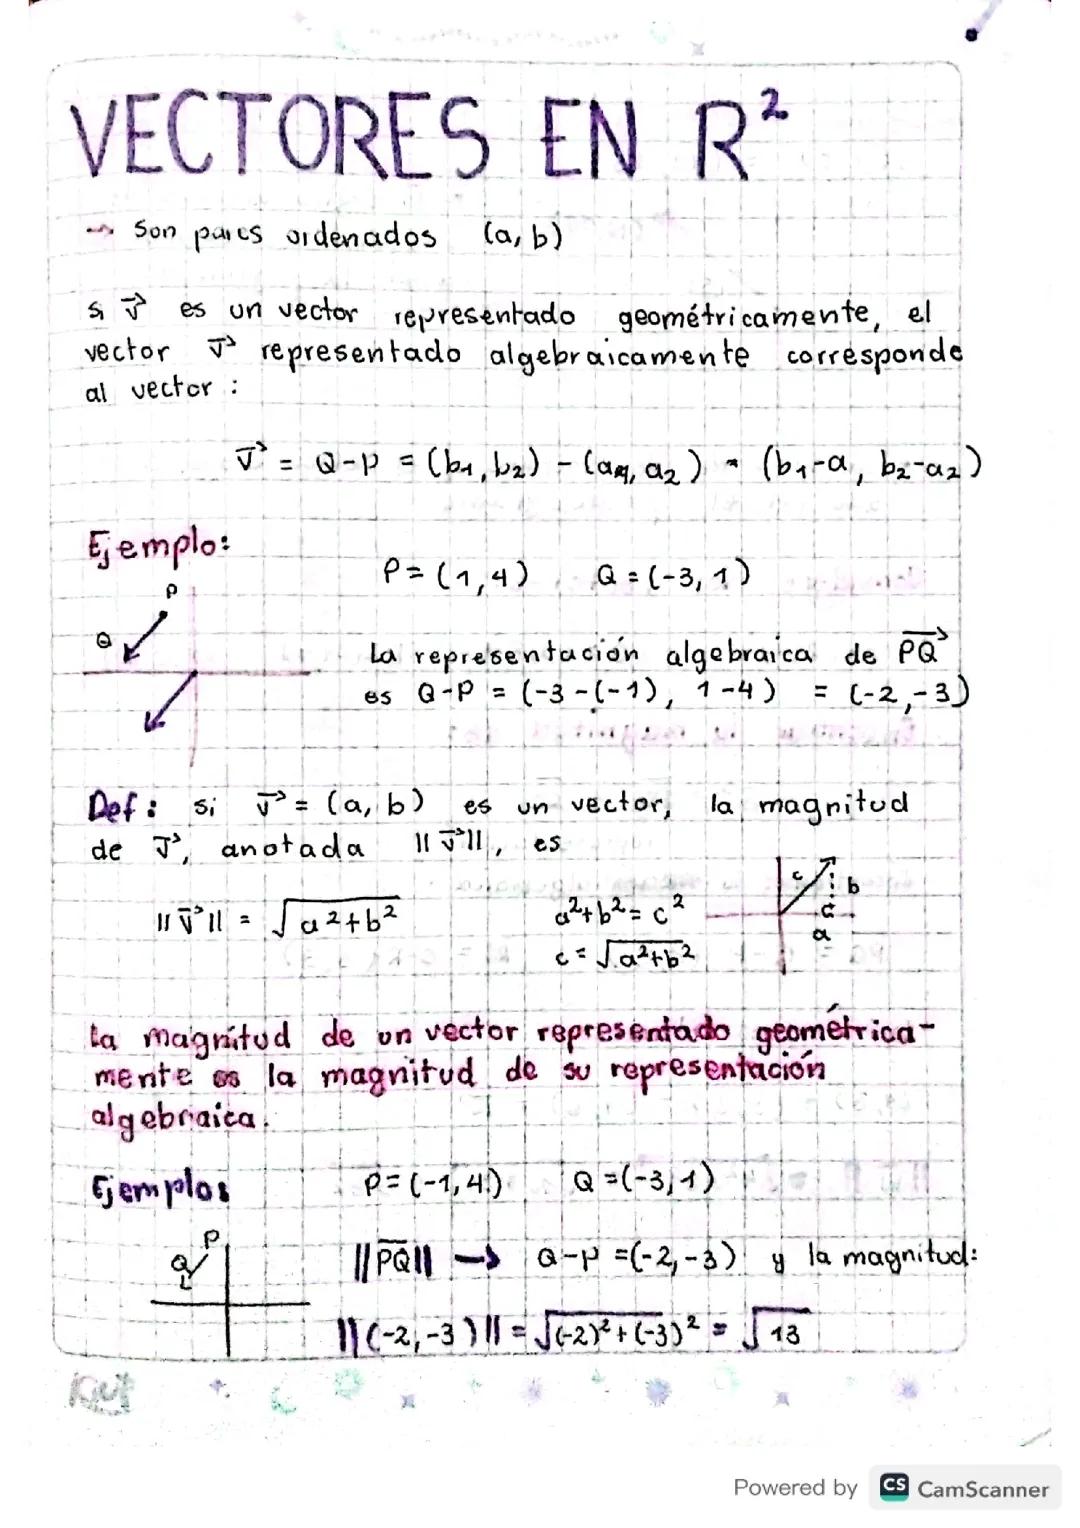 VECTORES EN R²
→ Son pares ordenados (a, b)
si v⃗ es un vector representado geométricamente, el
vector v⃗ representado algebraicamente corresponde
al vector :
v⃗ = Q-P = (b₁, b₂) - (a₁, a₂) = (b₁-a, b₂-a₂)
Ejemplo:
P = (1, 4) Q = (-3, 1)
P
Q
La representación algebraica de PQ⃗
es Q-P = (-3-(-1), 1-4) = (-2, -3)
Def: si v⃗ = (a, b) es un vector, la magnitud
de v⃗, anotada ||v⃗||, es
||v⃗|| = √a²+b²
a²+b² = c²
c = √a²+b²
c
b
a
La magnitud de un vector representado geométrica-
mente es la magnitud de su representación
algebraica.
Ejemplo:
P = (-1, 4) Q = (-3, 1)
P
Q
||PQ|| → Q-P = (-2, -3) y la magnitud:
||(-2, -3)|| = √(-2)² + (-3)² = √13
Powered by CS CamScanner